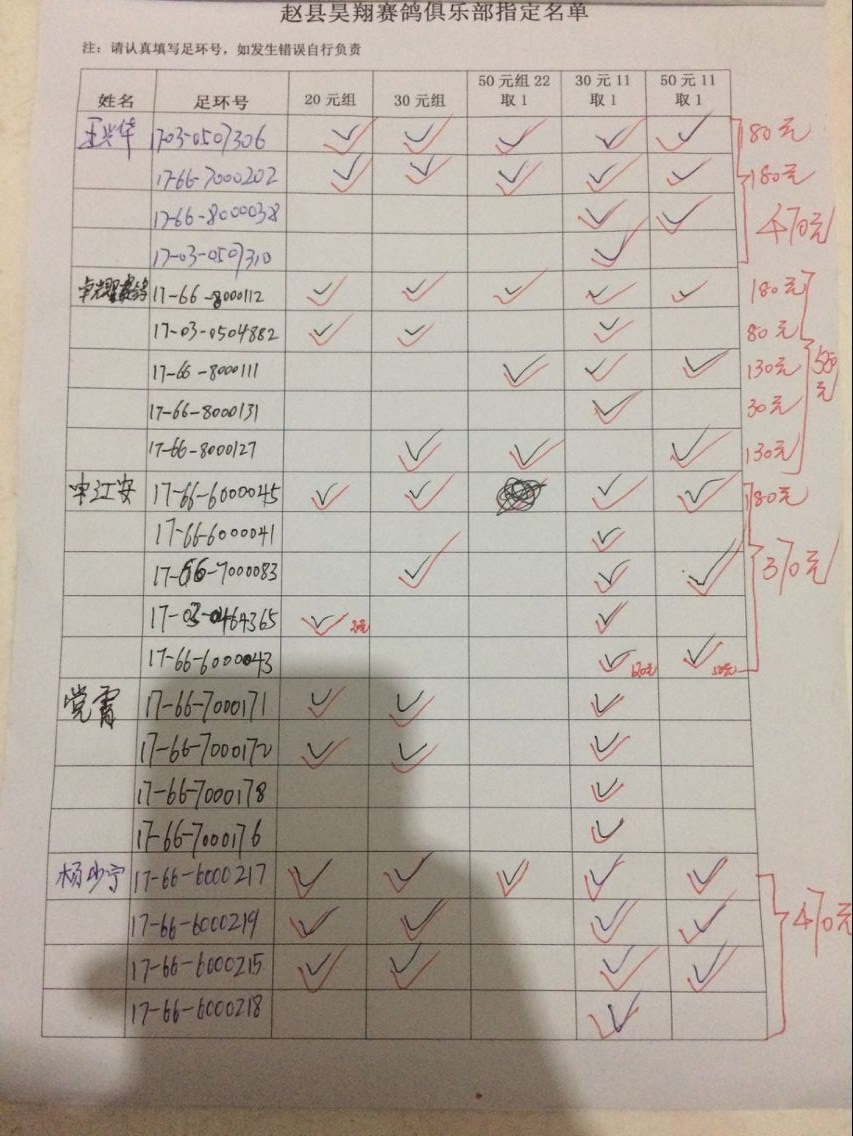 赵县昊翔赛鸽俱乐部指定名单
注：请认真填写足环号，如发生错误自行负责
姓名 足环号 20元组 30元组 50元组22取1 30元11取1 50元11取1
王兴华 17-03-0507306 ✓ ✓ ✓ ✓ ✓ 180元
17-66-7000202 ✓ ✓ ✓ ✓ ✓ 180元
17-66-8000038 ✓ ✓ 470元
17-03-0507310 ✓
17-66-8000112 ✓ ✓ ✓ ✓ ✓ 180元
17-03-0504882 ✓ ✓ ✓ 80元
17-66-8000111 ✓ ✓ ✓ 130元 550元
17-66-8000131 ✓ 30元
17-66-8000127 ✓ ✓ ✓ 130元
江安 17-66-6000045 ✓ ✓ ✓ ✓ 180元
17-66-6000041 ✓
17-66-7000083 ✓ ✓ ✓ 370元
17-03-0464365 ✓ 20元 ✓
17-66-6000043 ✓ ✓
党霄 17-66-7000171 ✓ ✓ ✓
17-66-7000172 ✓ ✓ ✓
17-66-7000178 ✓
17-66-7000176 ✓
杨少宁 17-66-6000217 ✓ ✓ ✓ ✓ ✓
17-66-6000219 ✓ ✓ ✓ ✓ 470元
17-66-6000215 ✓ ✓ ✓ ✓
17-66-6000218 ✓